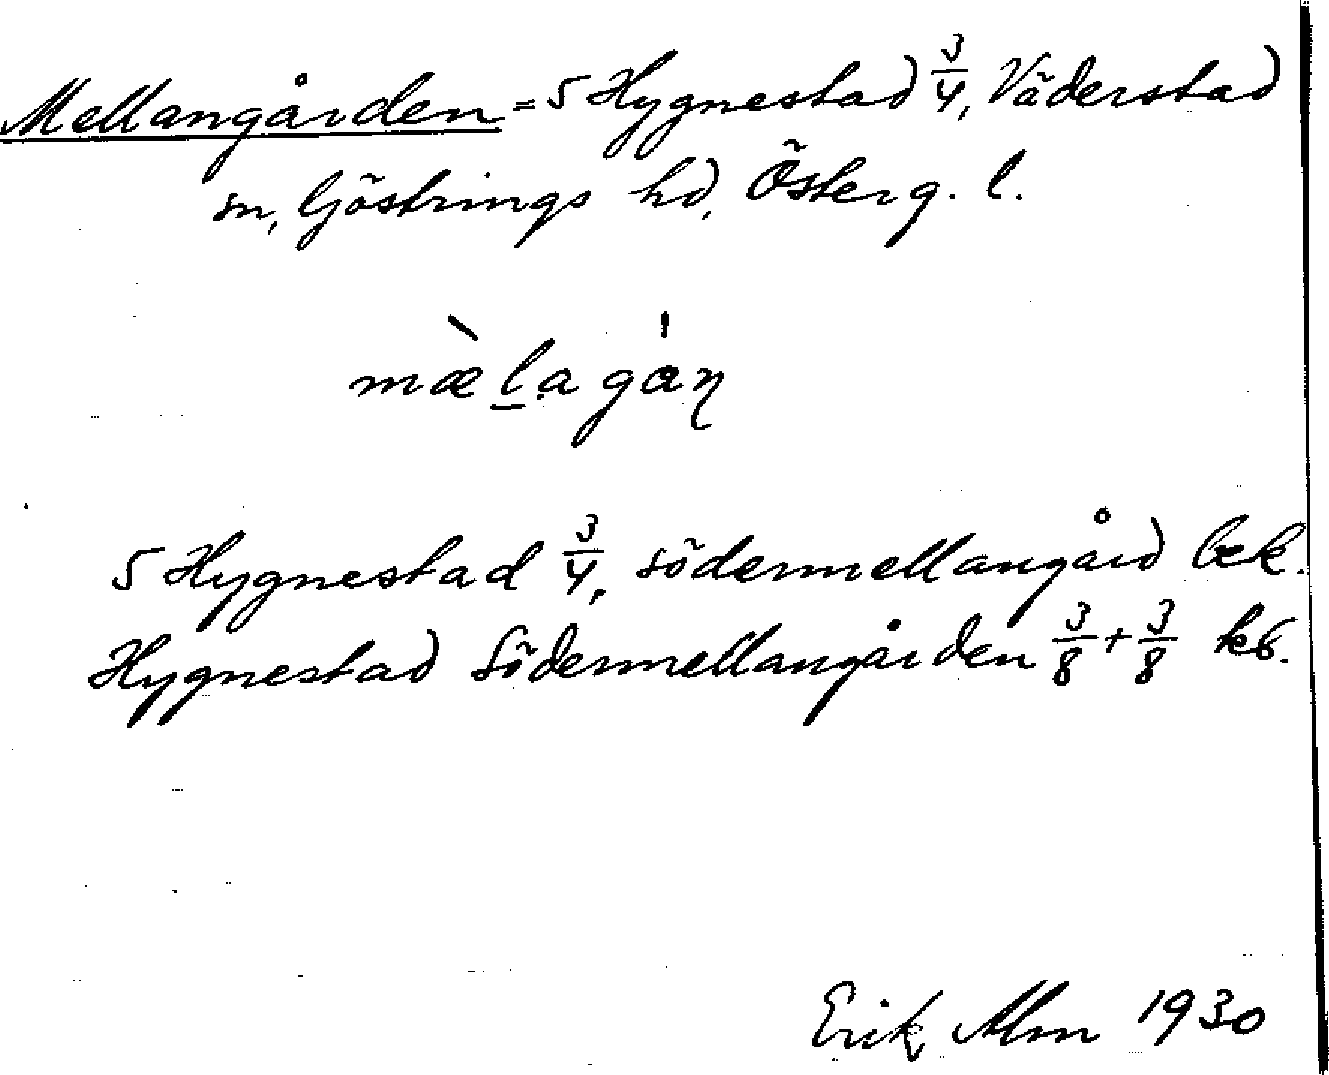 Mellangården = 5 Hygnestad 3/4, Väderstad
sn, Göstrings hd, Österg. l.
mæ̀lagɑ́ṇ
5 Hygnestad 3/4, södermellangård bek.
Hygnestad Södermellangården 3/8 + 3/8 kb.
Erik Alm 1930